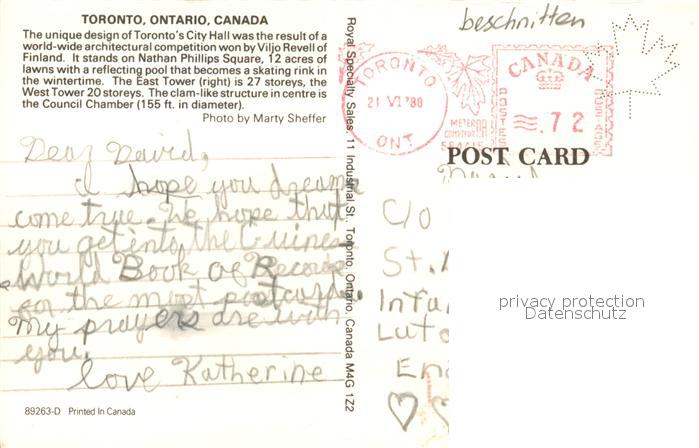 TORONTO, ONTARIO, CANADA
The unique design of Toronto's City Hall was the result of a
world-wide architectural competition won by Viljo Revell of
Finland. It stands on Nathan Phillips Square, 12 acres of
lawns with a reflecting pool that becomes a skating rink in
the wintertime. The East Tower (right) is 27 storeys, the
West Tower 20 storeys. The clam-like structure in centre is
the Council Chamber (155 ft. in diameter).
Photo by Marty Sheffer
Dear David,
I hope you dreams
come true. We hope that
you get into the Guiness
World Book of Records
for the most postcards.
My prayers are with
you.
love Katherine
89263-D Printed In Canada
Royal Specialty Sales, 11 Industrial St., Toronto, Ontario, Canada M4G 1Z2
beschnitten
TORONTO
21 VI '88
ONT
METER
CANADA
POSTES
POSTAGE
.72
POST CARD
C/O
St.
Infa
Luto
En
privacy protection
Datenschutz